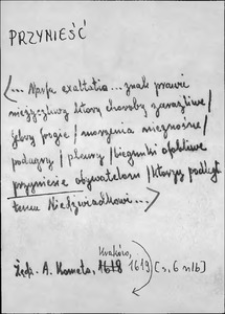 PRZYNIEŚĆ
<... Napsa exaltatio... znak prawie
nieszczęśliwy ktory choroby zaraźliwe/
febry srogie / morzenia nieznośne/
podagry / pleury / biegunki
przyniesie obywatelom / ktorzy podległ
temu Niedźwiadkowi...>
Kraków,
Żęd. A. Kometa, 1618 1619 [s. 6 nlb]